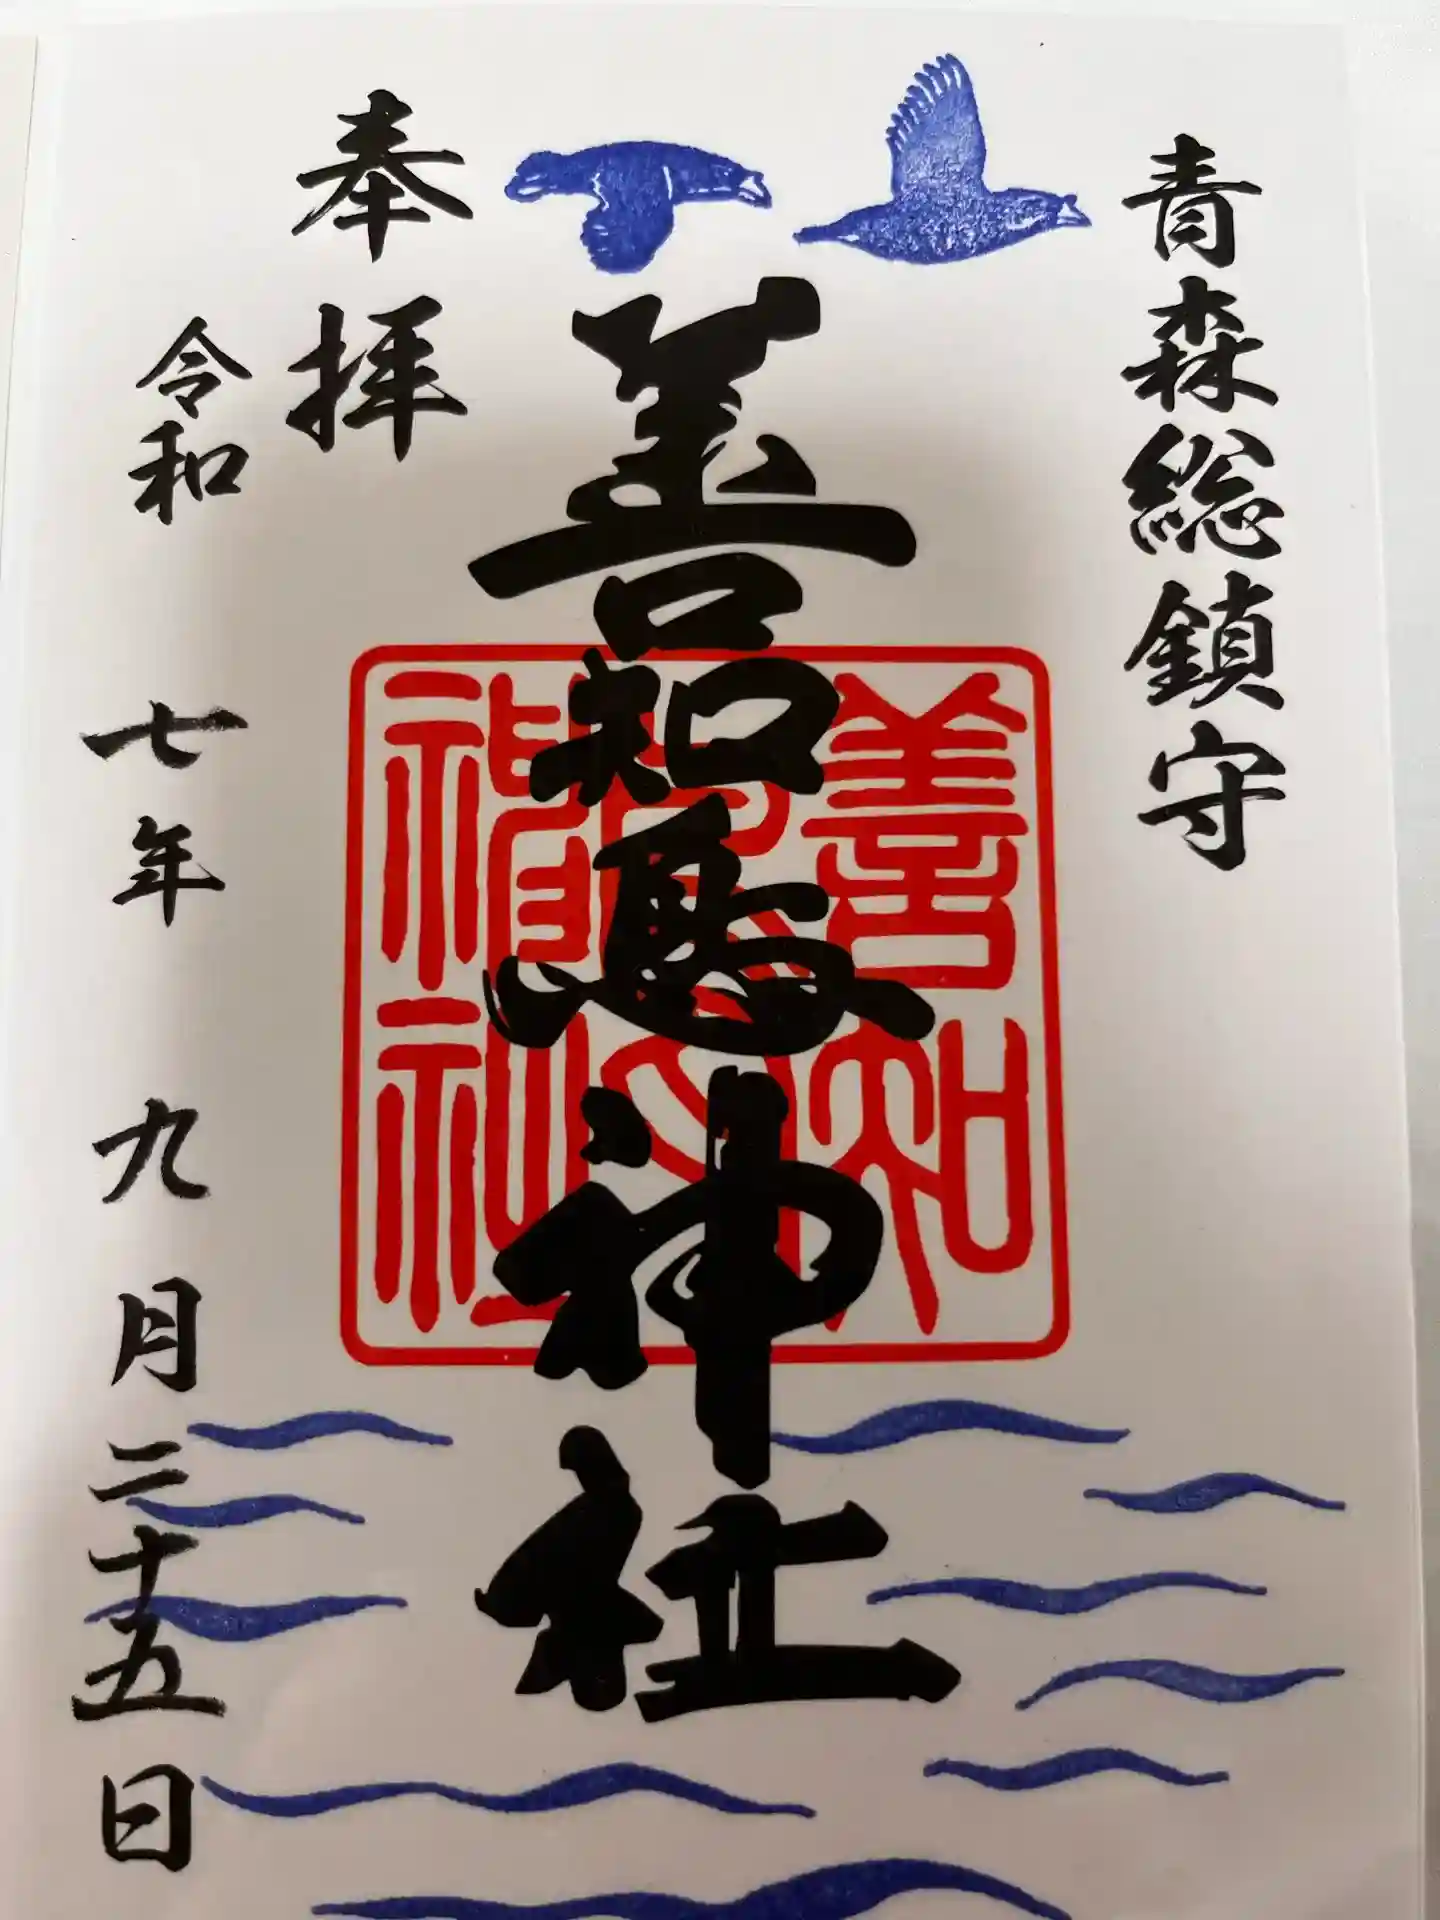 青森総鎮守
善知鳥神社
善知鳥神社
奉拝
令和七年九月二十五日